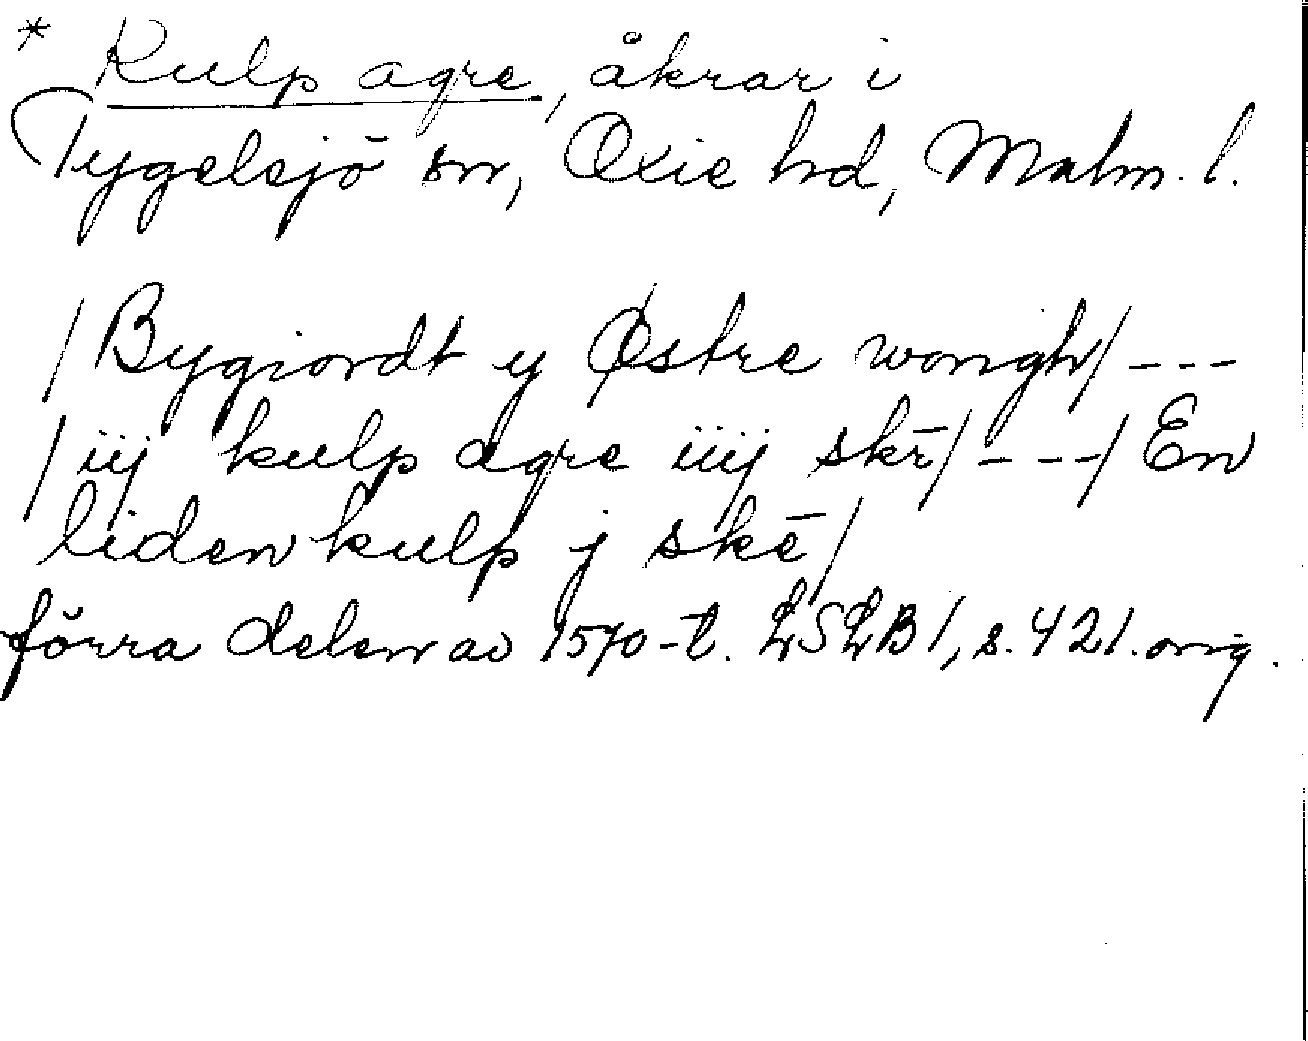 * Kulp agre, åkrar i
Tygelsjö sn, Oxie hd, Malm. l.
/Bygiordt y Østre wongh/ ---
/iij kulp agre iiij skr̄/ ---/ En
liden kulp j skē/
förra delen av 1570-t. LSLB 1, s. 421. orig.